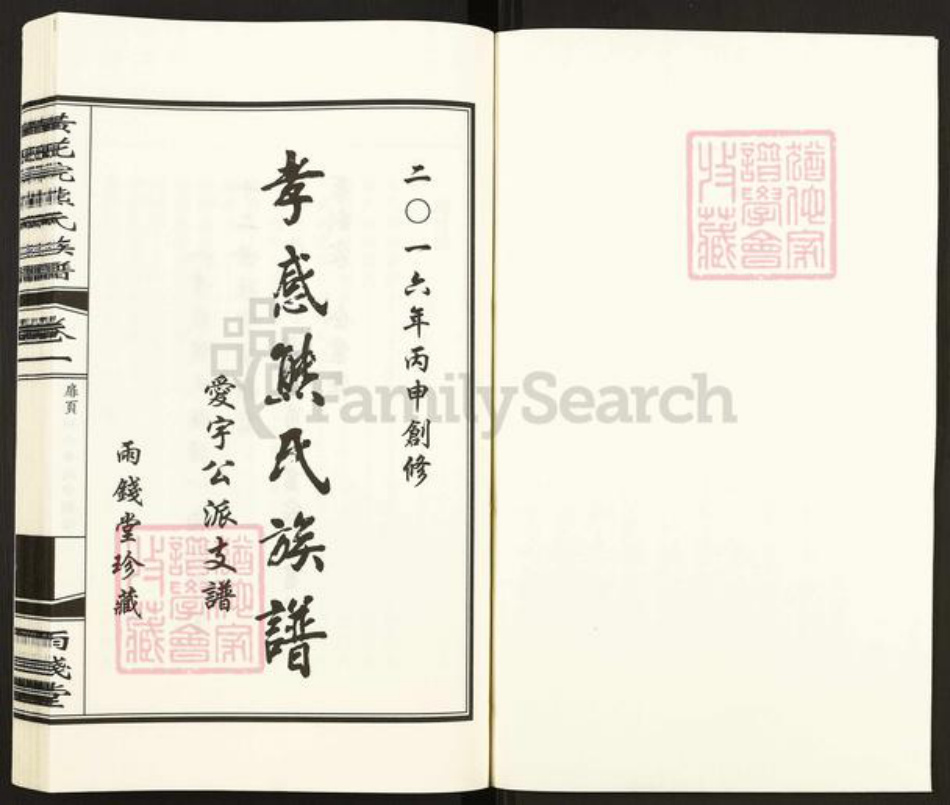 二〇一六年丙申創修
孝感熊氏族譜
愛宇公派支譜
雨錢堂珍藏
族譜
卷一
扉頁
雨錢堂
猶他家
譜學會
收藏
猶他家
譜學會
收藏
FamilySearch